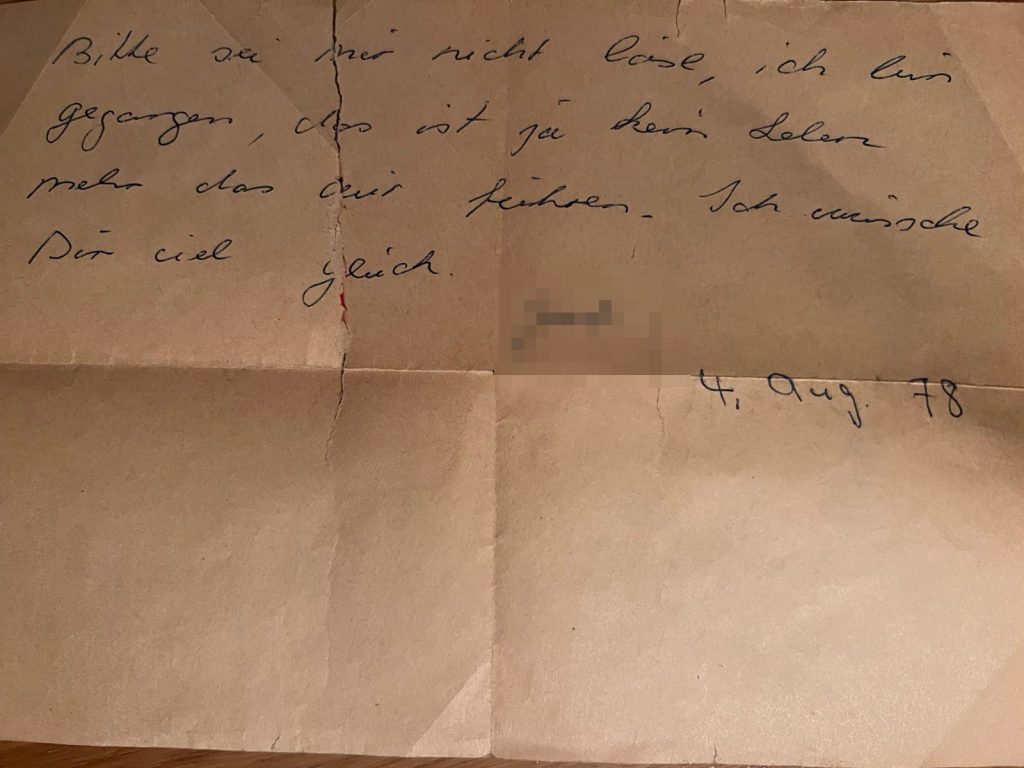 Bitte sei mir nicht böse, ich bin
gegangen, das ist ja kein Leben
mehr das wir führen. Ich wünsche
Dir viel glück.
4. Aug. 78